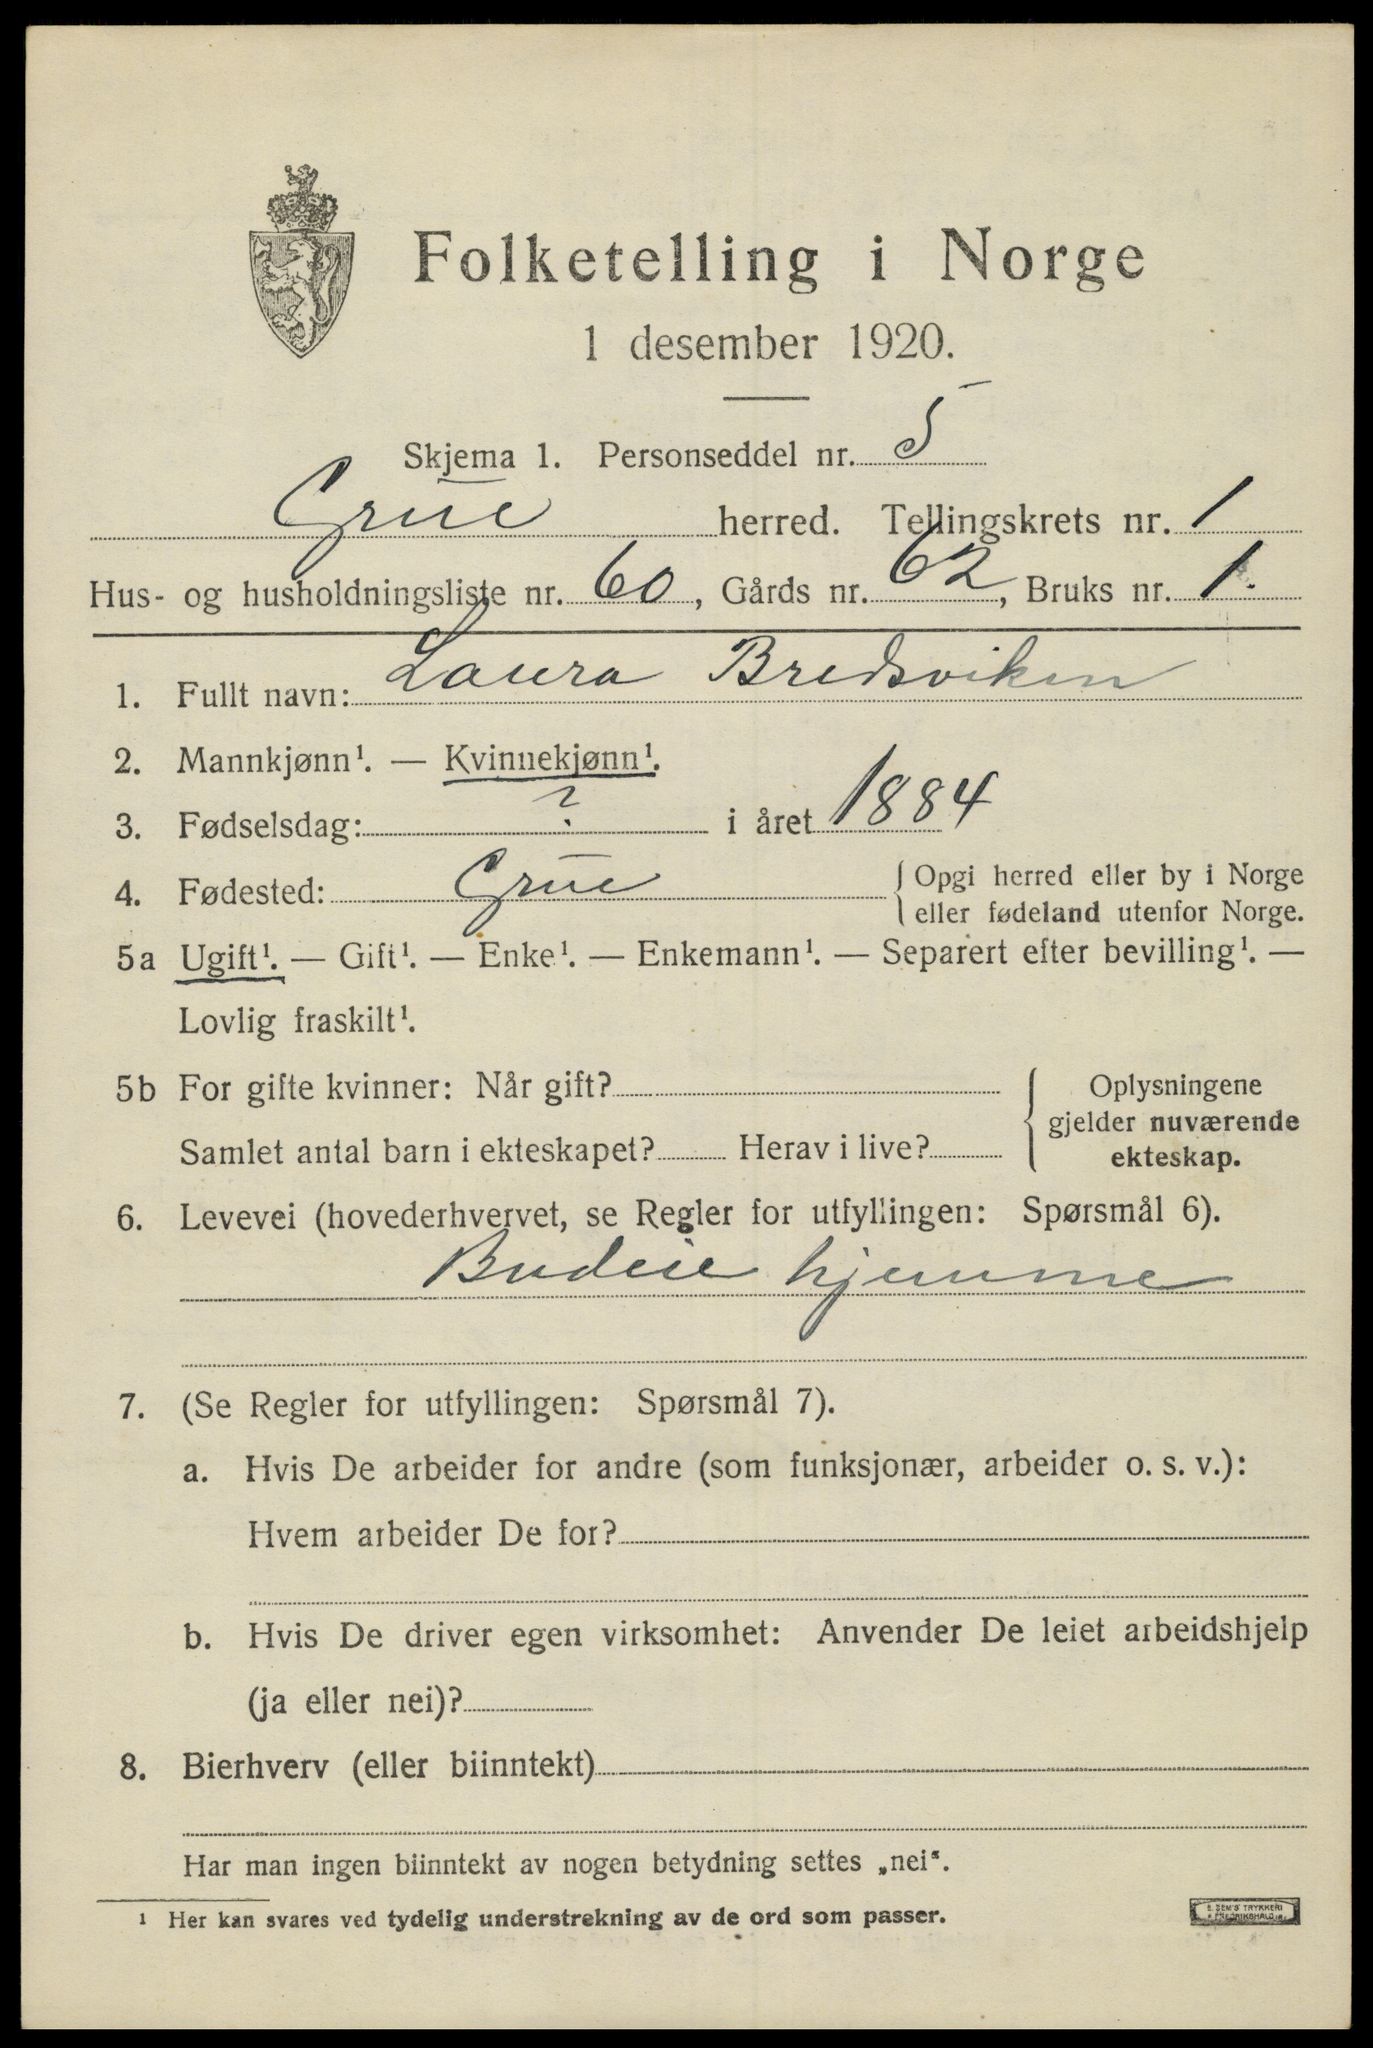 Folketelling i Norge
1 desember 1920.
Skjema 1. Personseddel nr. 5
Grue herred. Tellingskrets nr. 1
Hus- og husholdningsliste nr. 60, Gårds nr. 62, Bruks nr. 1.
1. Fullt navn: Laura Bredsviken
2. Mannkjønn¹. — Kvinnekjønn¹.
3. Fødselsdag: ? i året 1884
4. Fødested: Grue { Opgi herred eller by i Norge
eller fødeland utenfor Norge.
5a Ugift¹. — Gift¹. — Enke¹. — Enkemann¹. — Separert efter bevilling¹. —
Lovlig fraskilt¹.
5b For gifte kvinner: Når gift?
Samlet antal barn i ekteskapet? Herav i live?
{ Oplysningene
gjelder nuværende
ekteskap.
6. Levevei (hovederhvervet, se Regler for utfyllingen: Spørsmål 6).
Budeie hjemme
7. (Se Regler for utfyllingen: Spørsmål 7).
a. Hvis De arbeider for andre (som funksjonær, arbeider o. s. v.):
Hvem arbeider De for?
b. Hvis De driver egen virksomhet: Anvender De leiet arbeidshjelp
(ja eller nei)?
8. Bierhverv (eller biinntekt)
Har man ingen biinntekt av nogen betydning settes „nei“.
¹ Her kan svares ved tydelig understrekning av de ord som passer.
E. SEM'S TRYKKERI
FREDRIKSHALD